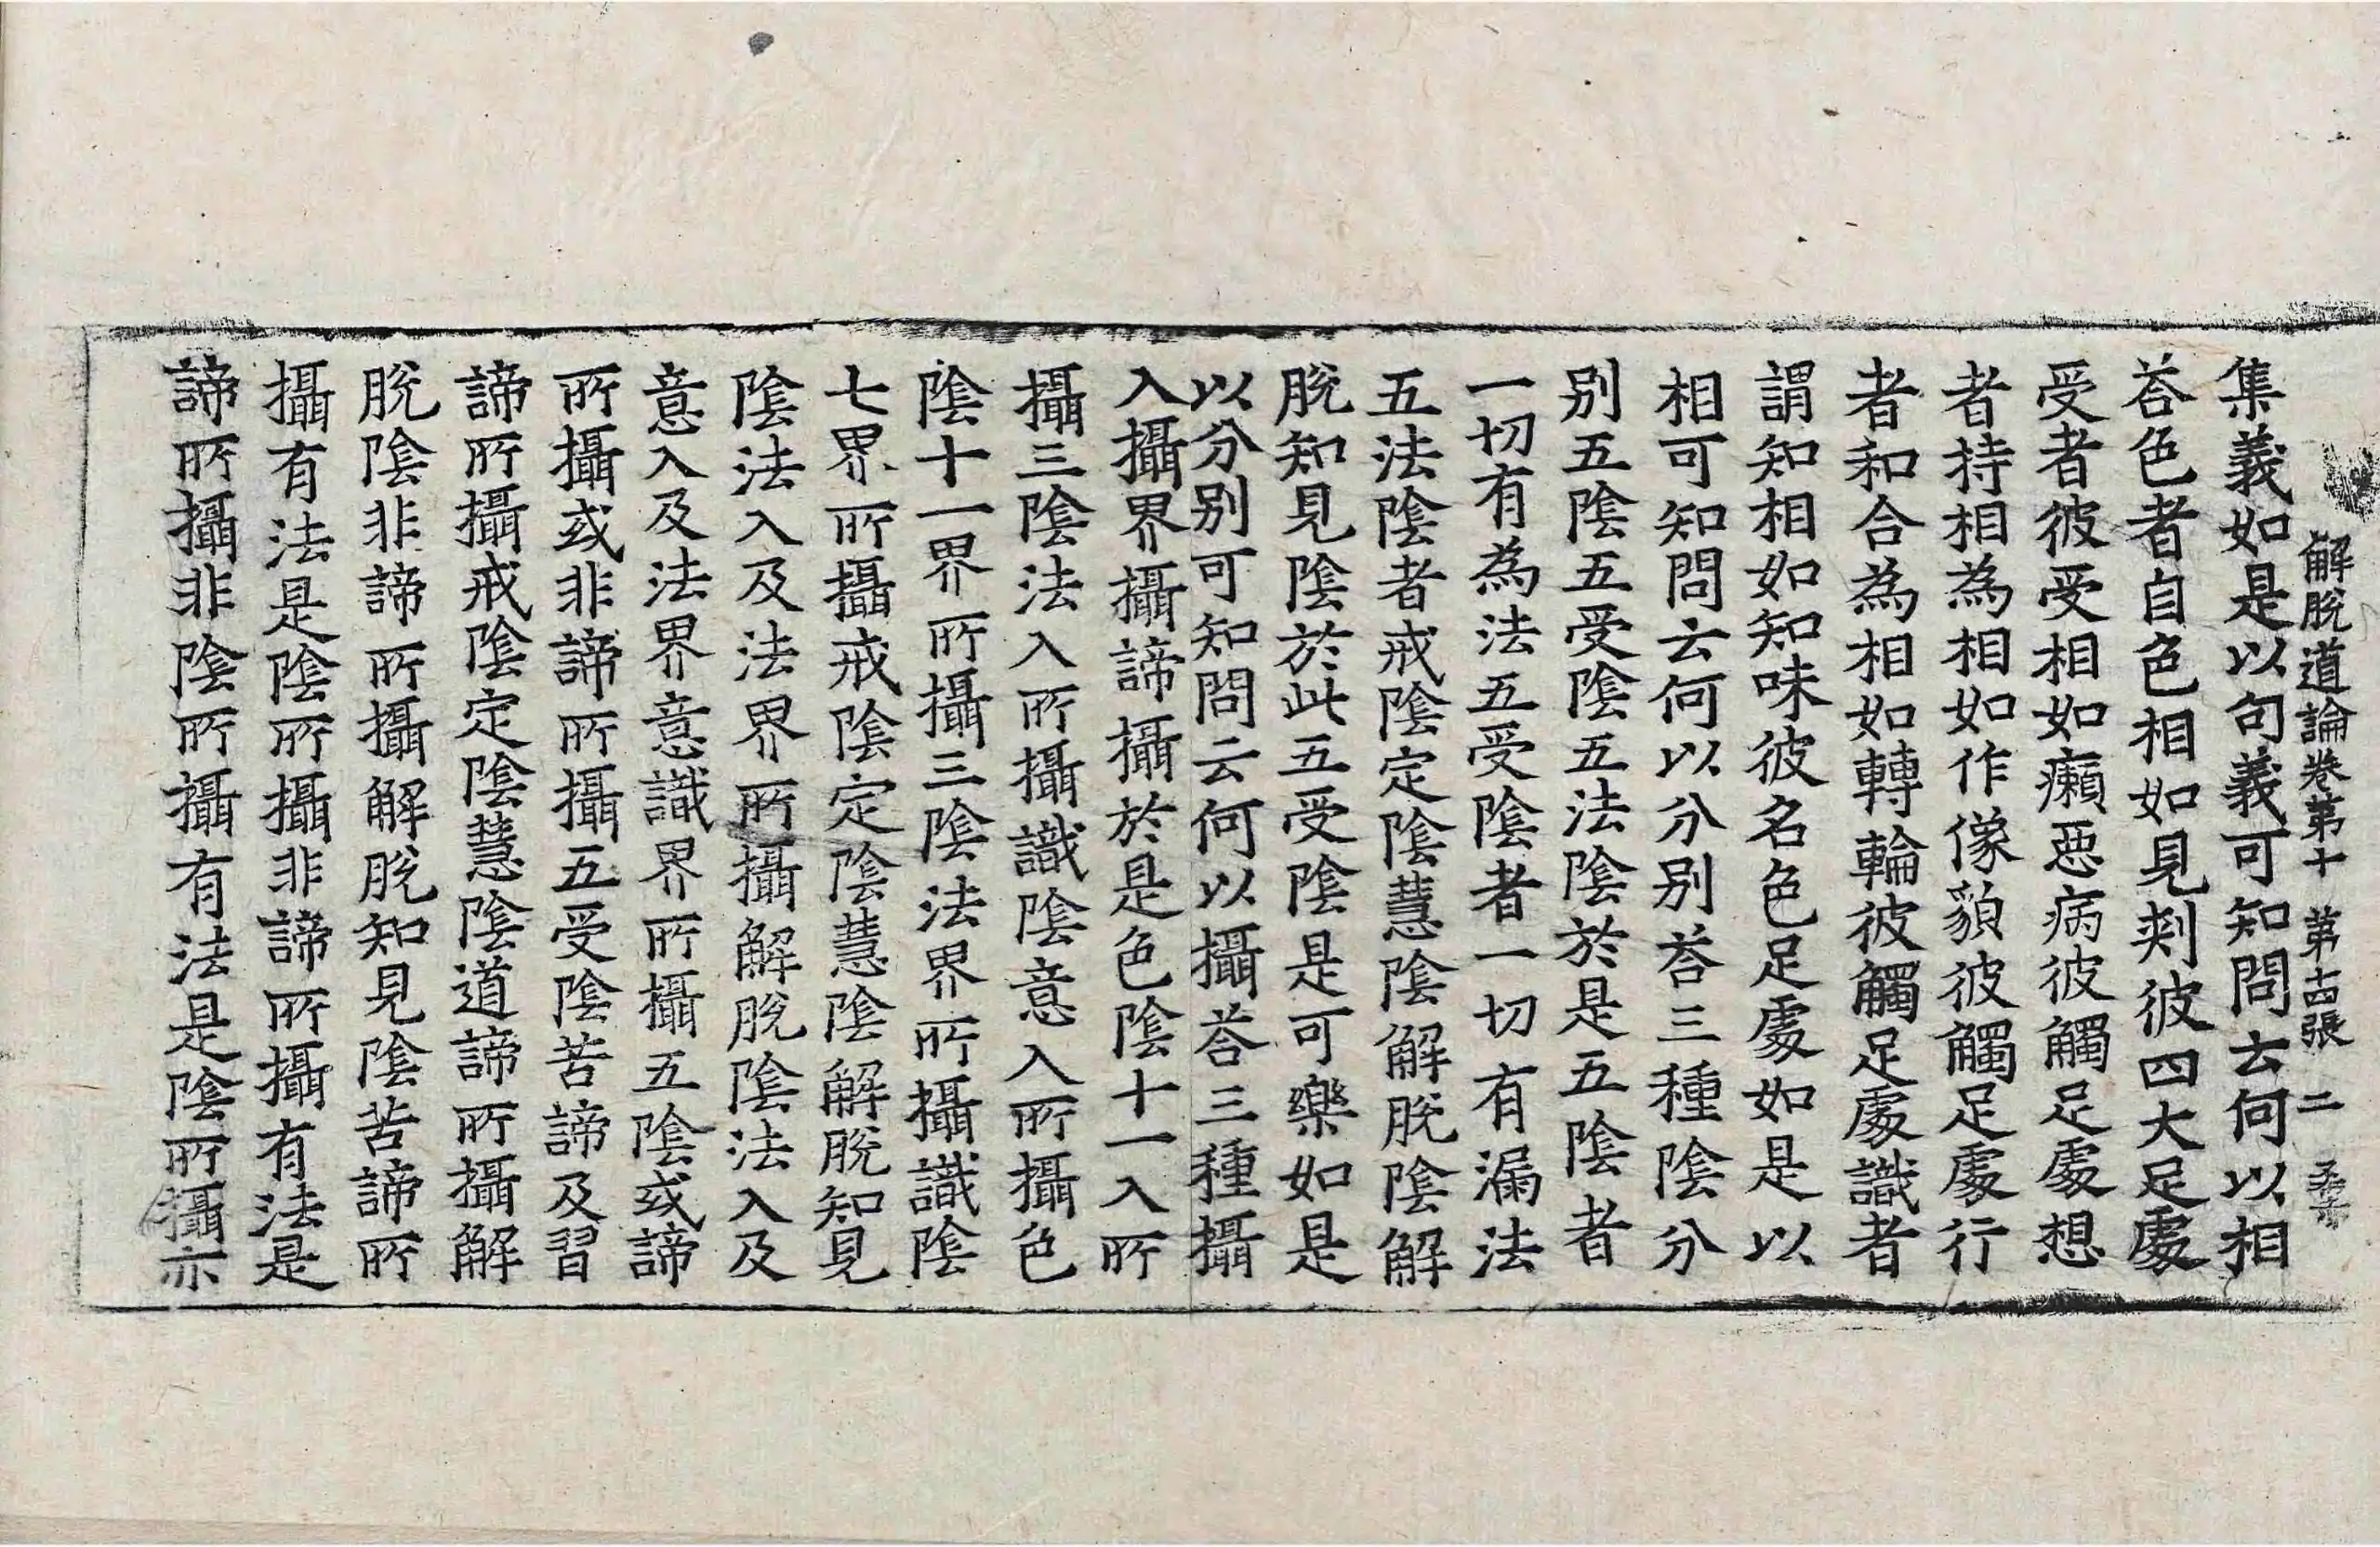 解脫道論卷第十 第十四張 二 桑
集義如是以句義可知問云何以相
荅色者自色相如見剌彼四大足處
受者彼受相如癩惡病彼觸足處想
者持相為相如作像貌彼觸足處行
者和合為相如轉輪彼觸足處識者
謂知相如知味彼名色足處如是以
相可知問云何以分別荅三種陰分
別五陰五受陰五法陰於是五陰者
一切有為法五受陰者一切有漏法
五法陰者戒陰定陰慧陰解脫陰解
脫知見陰於此五受陰是可樂如是
以分別可知問云何以攝荅三種攝
入攝界攝諦攝於是色陰十一入所
攝三陰法入所攝識陰意入所攝色
陰十一界所攝三陰法界所攝識陰
七界所攝戒陰定陰慧陰解脫知見
陰法入及法界所攝解脫陰法入及
意入及法界意識界所攝五陰或諦
所攝或非諦所攝五受陰苦諦及習
諦所攝戒陰定陰慧陰道諦所攝解
脫陰非諦所攝解脫知見陰苦諦所
攝有法是陰所攝非諦所攝有法是
諦所攝非陰所攝有法是陰所攝亦